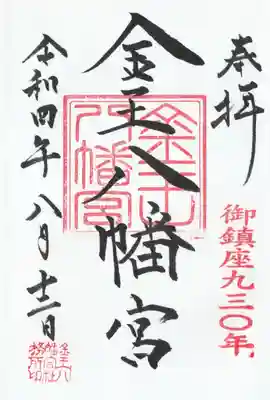 奉拝
御鎮座九三〇年
金王八幡宮
金王八幡宮
令和四年八月十二日
金王八
幡宮社
務所印